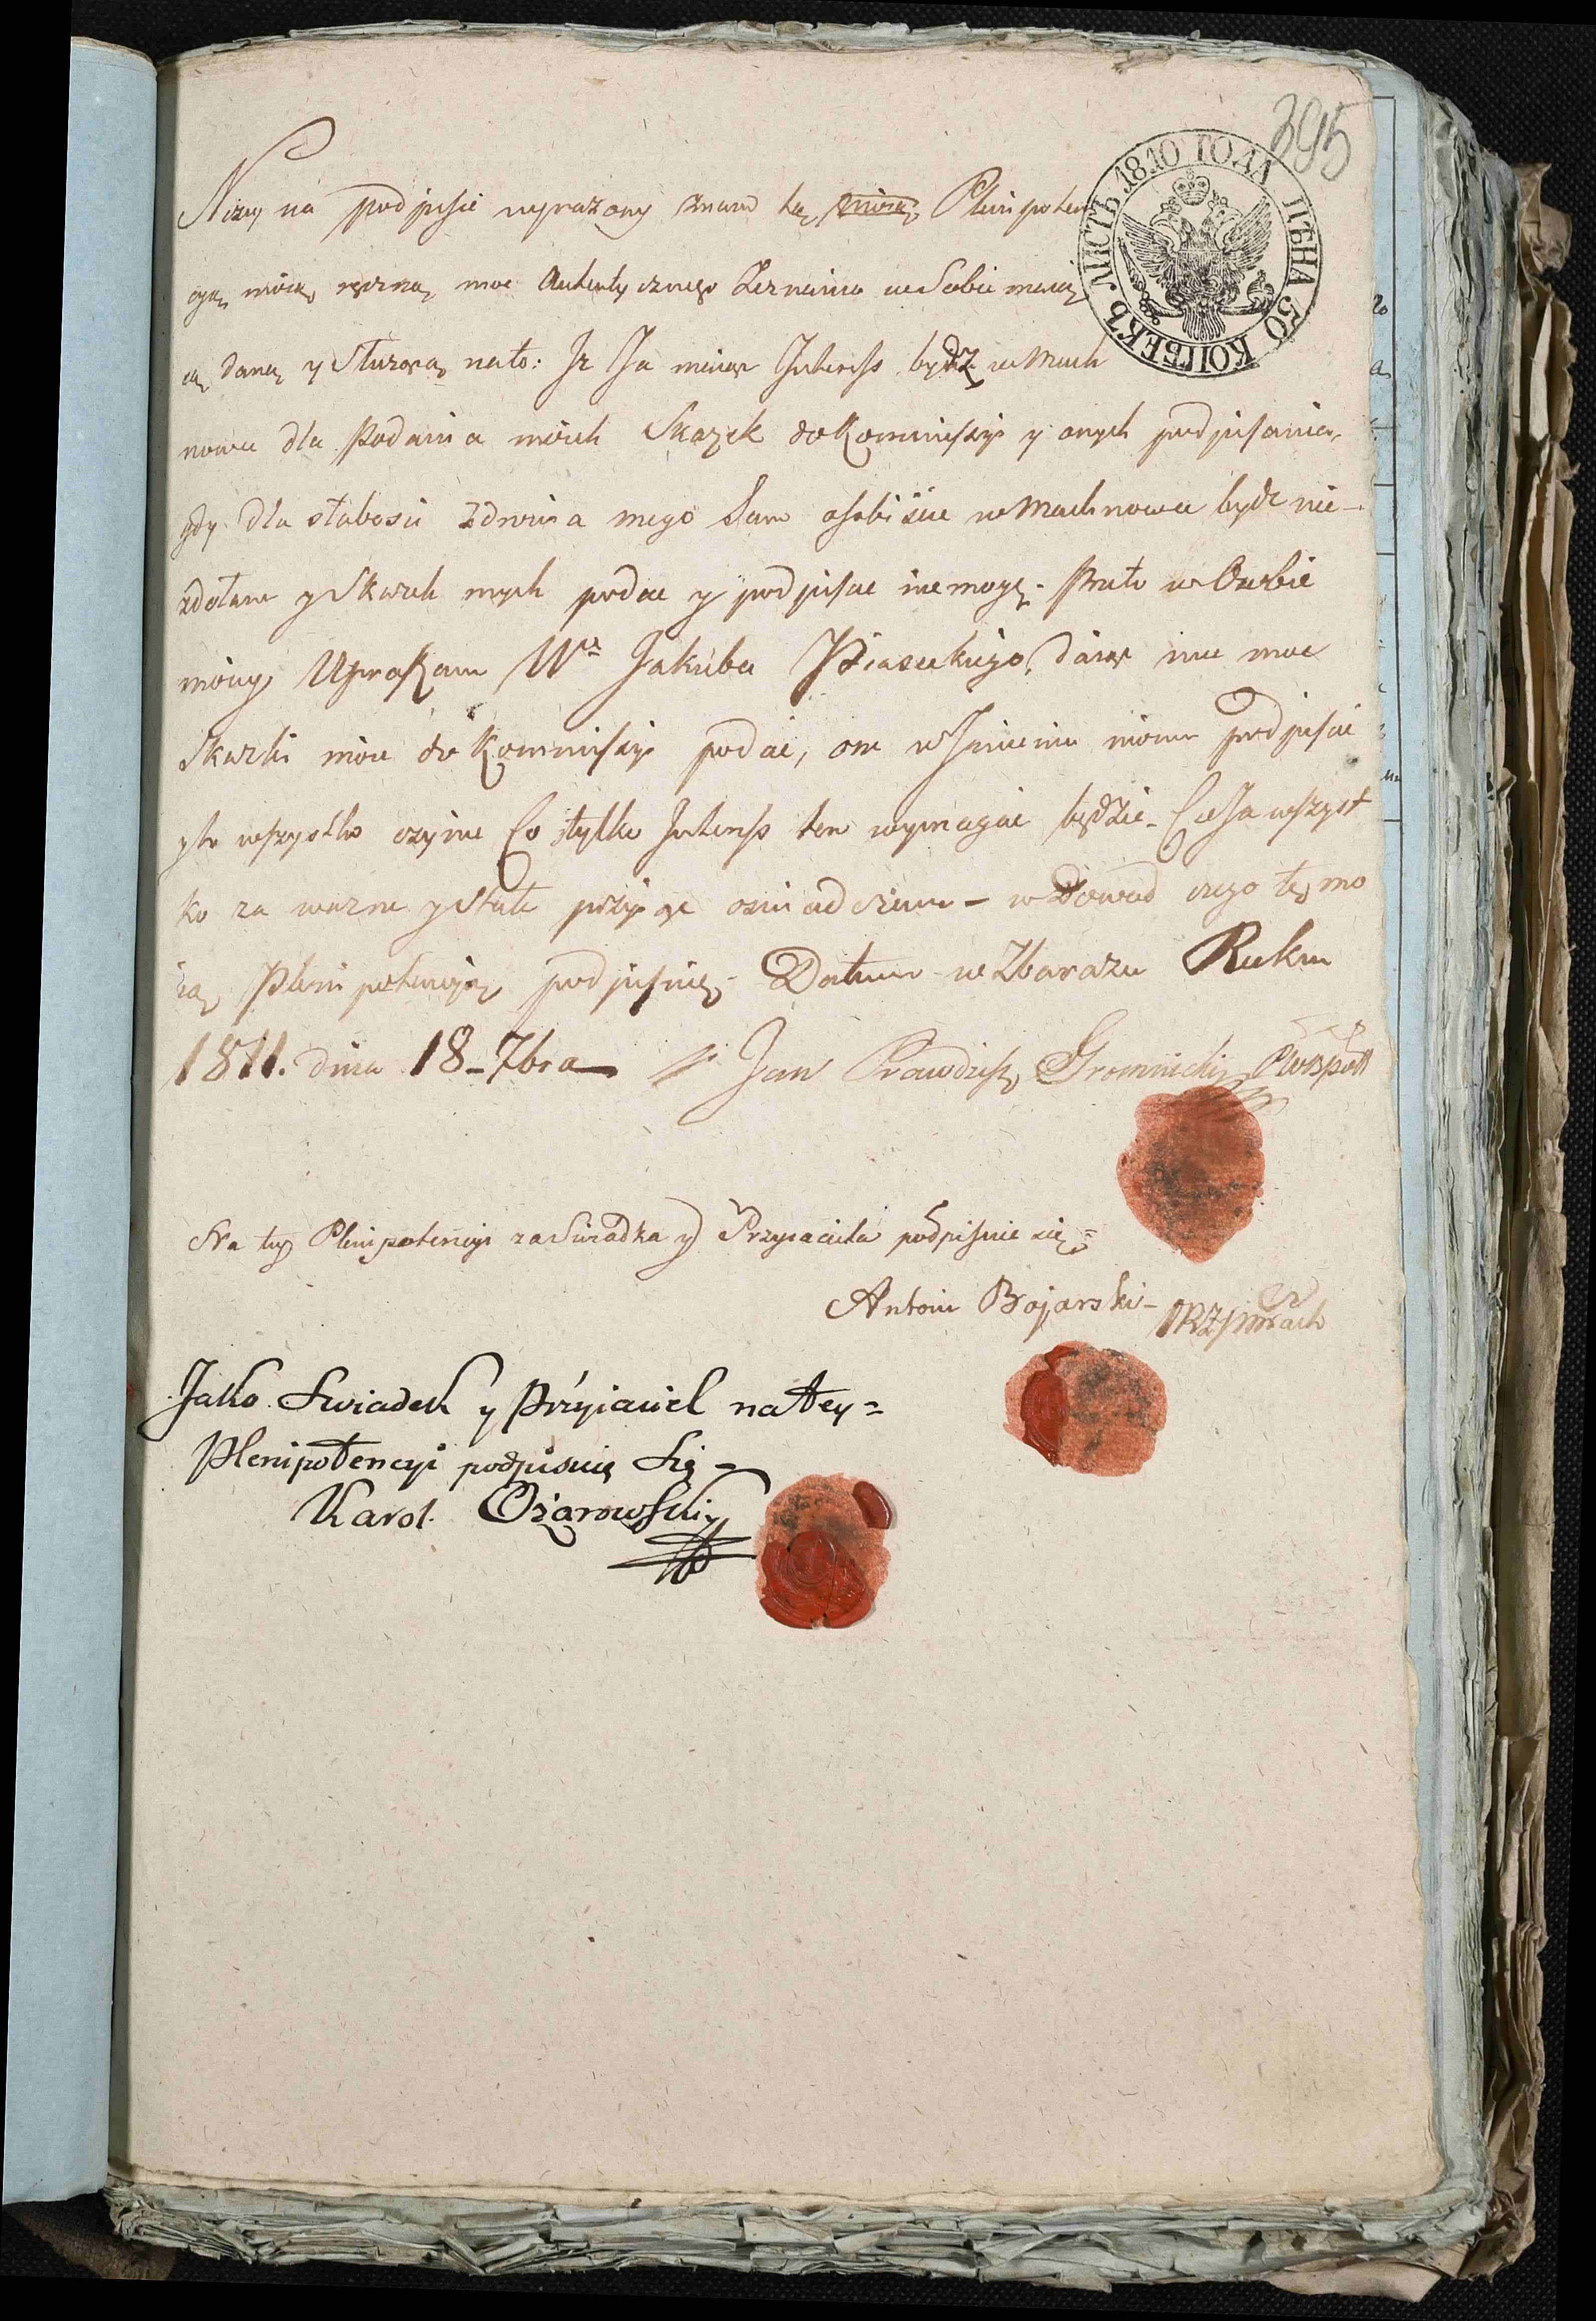 395
ЛИСТЪ 1810 ГОДА ЦѢНА 50 КОПѢЕКЪ
Nizey na podpisie wyrazony znam tę moią Plenipoten
cyą moią ręczną moc Autentycznego Zeznania w Sobie maią
cą daną y Służącą na to: Iz Ja maiąc Interess bydz w Mach
nowce dla Podania moich Skazek do Kommissyi y onych podpisania,
gdy dla słabosci Zdrowia mego Sam osobiscie w Machnowce bydz nie-
zdołam y Skazek mych podac y podpisac niemogę. Prato w Osobie
moiey Upraszam Wa Jakuba Piaseckiego, daiąc mu moc
Skazki moie do Kommissyi podac, one w Imieniu moim podpisac
y to wszystko czynic Co tylko Interess ten wymagac będzie - Co Ja wszyst
ko za wazne y Stałe przyiąc oswiadczam - w Dowod czego tę mo
ią Plenipotencyią podpisuię - Datum w Zbarazu Roku
1811. dnia 18-7bra Jan Prawdzic Gromnicki
Na tey Plenipotencyi za Swiadka y Przyiaciela podpisuie się
Antoni Bojarski -
Jako Swiadek y Przyiaciel na tey =
Plenipotencyi podpisuię Się -
Karol Ożarowski